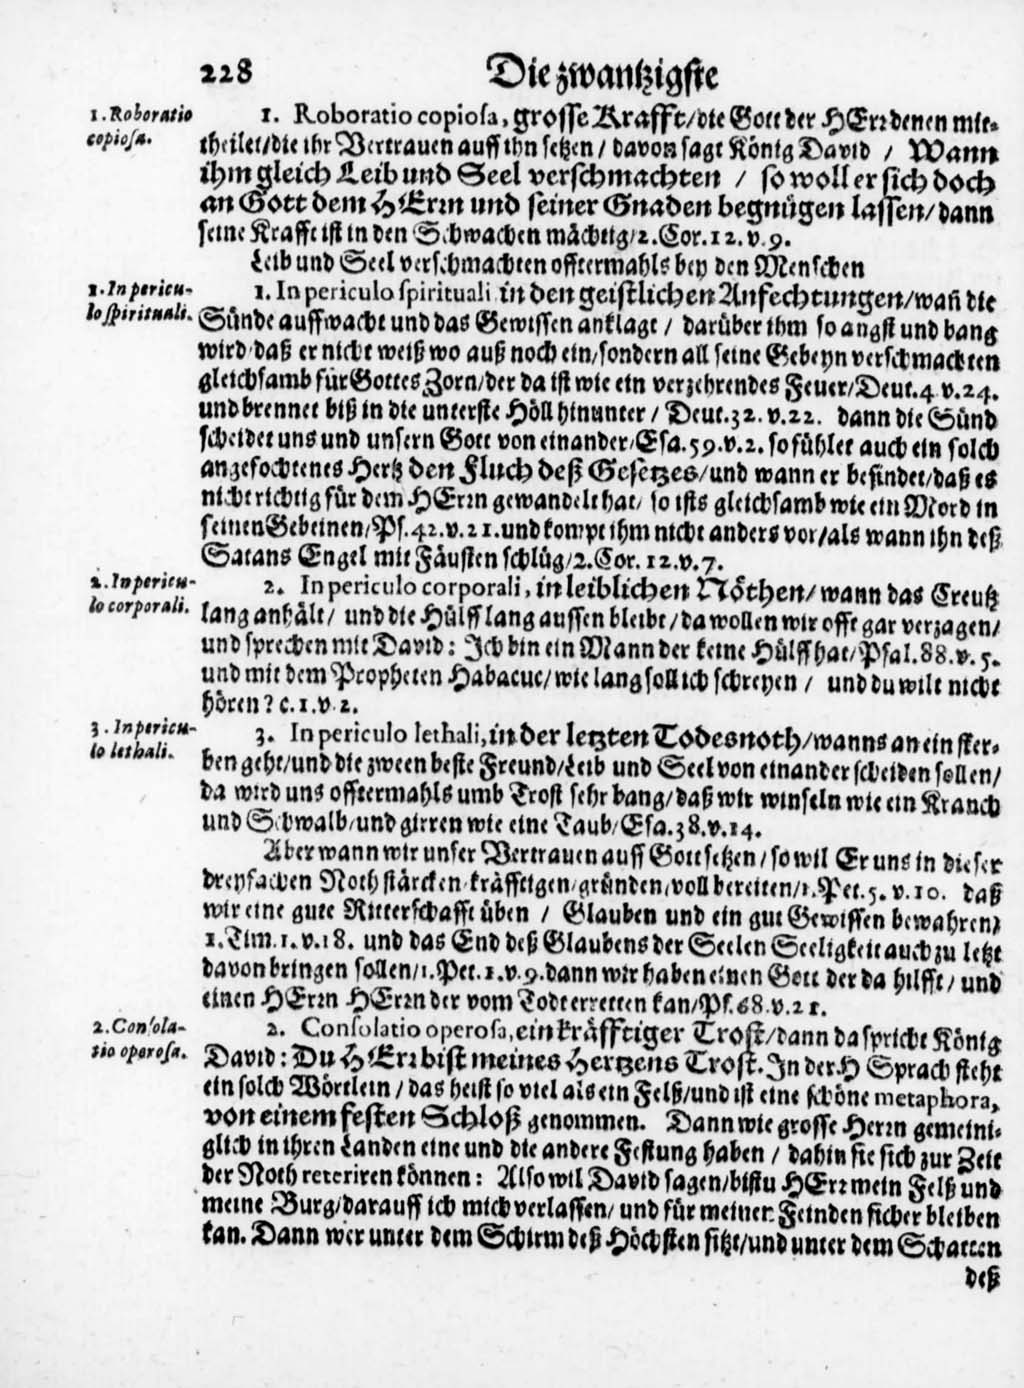 228 Die zwantzigste
1. Roboratio copiosa.
1. Roboratio copiosa, grosse Krafft/die Gott der HErr denen mit-
theilet/die ihr Vertrauen auff ihn setzen / davon sagt König David / Wann
ihm gleich Leib und Seel verschmachten / so woll er sich doch
an Gott dem HErrn und seiner Gnaden begnügen lassen/ dann
seine Krafft ist in den Schwachen mächtig/2. Cor. 12. v. 9.
Leib und Seel verschmachten offtermahls bey den Menschen
1. In pericu-
lo spirituali.
1. In periculo spirituali in den geistlichen Anfechtungen/wañ die
Sünde auffwacht und das Gewissen anklagt / darüber ihm so angst und bang
wird/daß er nicht weiß wo auß noch ein/sondern all seine Gebeyn verschmachten
gleichsamb für Gottes Zorn/der da ist wie ein verzehrendes Feuer/Deut. 4 v. 24.
und brennet biß in die unterste Höll hinunter / Deut. 32. v. 22. dann die Sünd
scheidet uns und unsern Gott von einander/Esa. 59. v. 2. so fühlet auch ein solch
angefochtenes Hertz den Fluch deß Gesetzes/und wann er befindet/daß es
nicht richtig für dem HErrn gewandelt hat/ so ists gleichsamb wie ein Mord in
seinen Gebeinen/Ps. 42. v. 21. und kompt ihm nicht anders vor/als wann ihn deß
Satans Engel mit Fäusten schlüg/2. Cor. 12. v. 7.
2. In pericu-
lo corporali.
2. In periculo corporali, in leiblichen Nöthen/ wann das Creutz
lang anhält/ und die Hülff lang aussen bleibt/da wollen wir offt gar verzagen/
und sprechen mit David: Ich bin ein Mann der keine Hülff hat/Psal. 88. v. 5.
und mit dem Propheten Habacuc/ wie lang soll ich schreyen / und du wilt nicht
hören? c. 1. v. 2.
3. In pericu-
lo lethali.
3. In periculo lethali, in der letzten Todesnoth/wanns an ein ster-
ben geht/und die zween beste Freund/Leib und Seel von einander scheiden sollen/
da wird uns offtermahls umb Trost sehr bang/daß wir winseln wie ein Kranch
und Schwalb/und girren wie eine Taub/Esa. 38. v. 14.
Aber wann wir unser Vertrauen auff Gott setzen / so wil Er uns in dieser
dreyfachen Noth stärcken/kräfftigen/gründen/voll bereiten/1. Pet. 5. v. 10. daß
wir eine gute Ritterschafft üben / Glauben und ein gut Gewissen bewahren/
1. Tim. 1. v. 18. und das End deß Glaubens der Seelen Seeligkeit auch zu letzt
davon bringen sollen/1. Pet. 1. v. 9. dann wir haben einen Gott der da hilfft/ und
einen HErrn HErrn der vom Todt erretten kan/Ps. 68. v. 21.
2. Consola-
tio operosa.
2. Consolatio operosa, ein kräfftiger Trost/dann da spricht König
David: Du HErr bist meines Hertzens Trost. In der H Sprach steht
ein solch Wörtlein / das heist so viel als ein Felß/und ist eine schöne metaphora,
von einem festen Schloß genommen. Dann wie grosse Herrn gemeini-
glich in ihren Landen eine und die andere Festung haben / dahin sie sich zur Zeit
der Noth reteriren können: Also wil David sagen/bistu HErr mein Felß und
meine Burg/darauff ich mich verlassen/ und für meinen Feinden sicher bleiben
kan. Dann wer unter dem Schirm deß Höchsten sitzt/und unter dem Schatten
deß